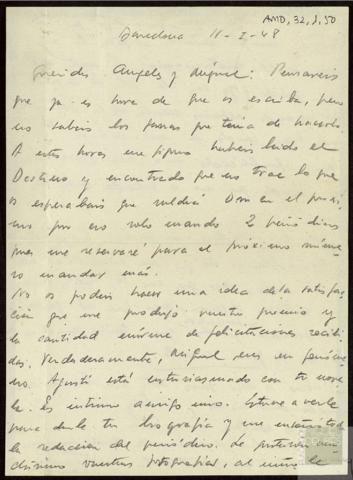 AMD, 32, 1, 50
Barcelona 11-I-48
Queridos Angeles y Miguel: Pensareis
que ya es hora de que os escriba, pero
no sabeis las ganas que tenia de hacerlo.
A estas horas me figuro habeis leido el
Destino y encontrado que no trae lo que
os esperabais que saldria
no por no solo mando 2 periodicos
pues me reservaré para el próximo núme-
ro mandar más.
No os podeis hacer una idea de la satisfac-
ción que me produjo vuestro premio y
la cantidad enorme de felicitaciones recibi-
das. Verdaderamente, Miguel eres un fenóme-
no. Agustí está entusiasmado con tu nove-
la. Es intimo amigo mio. Estuve a verle
para darle tu biografía y me enseñó toda
la redacción del periódico. Le gustaron mu-
chisimo vuestras fotografias, al niño le